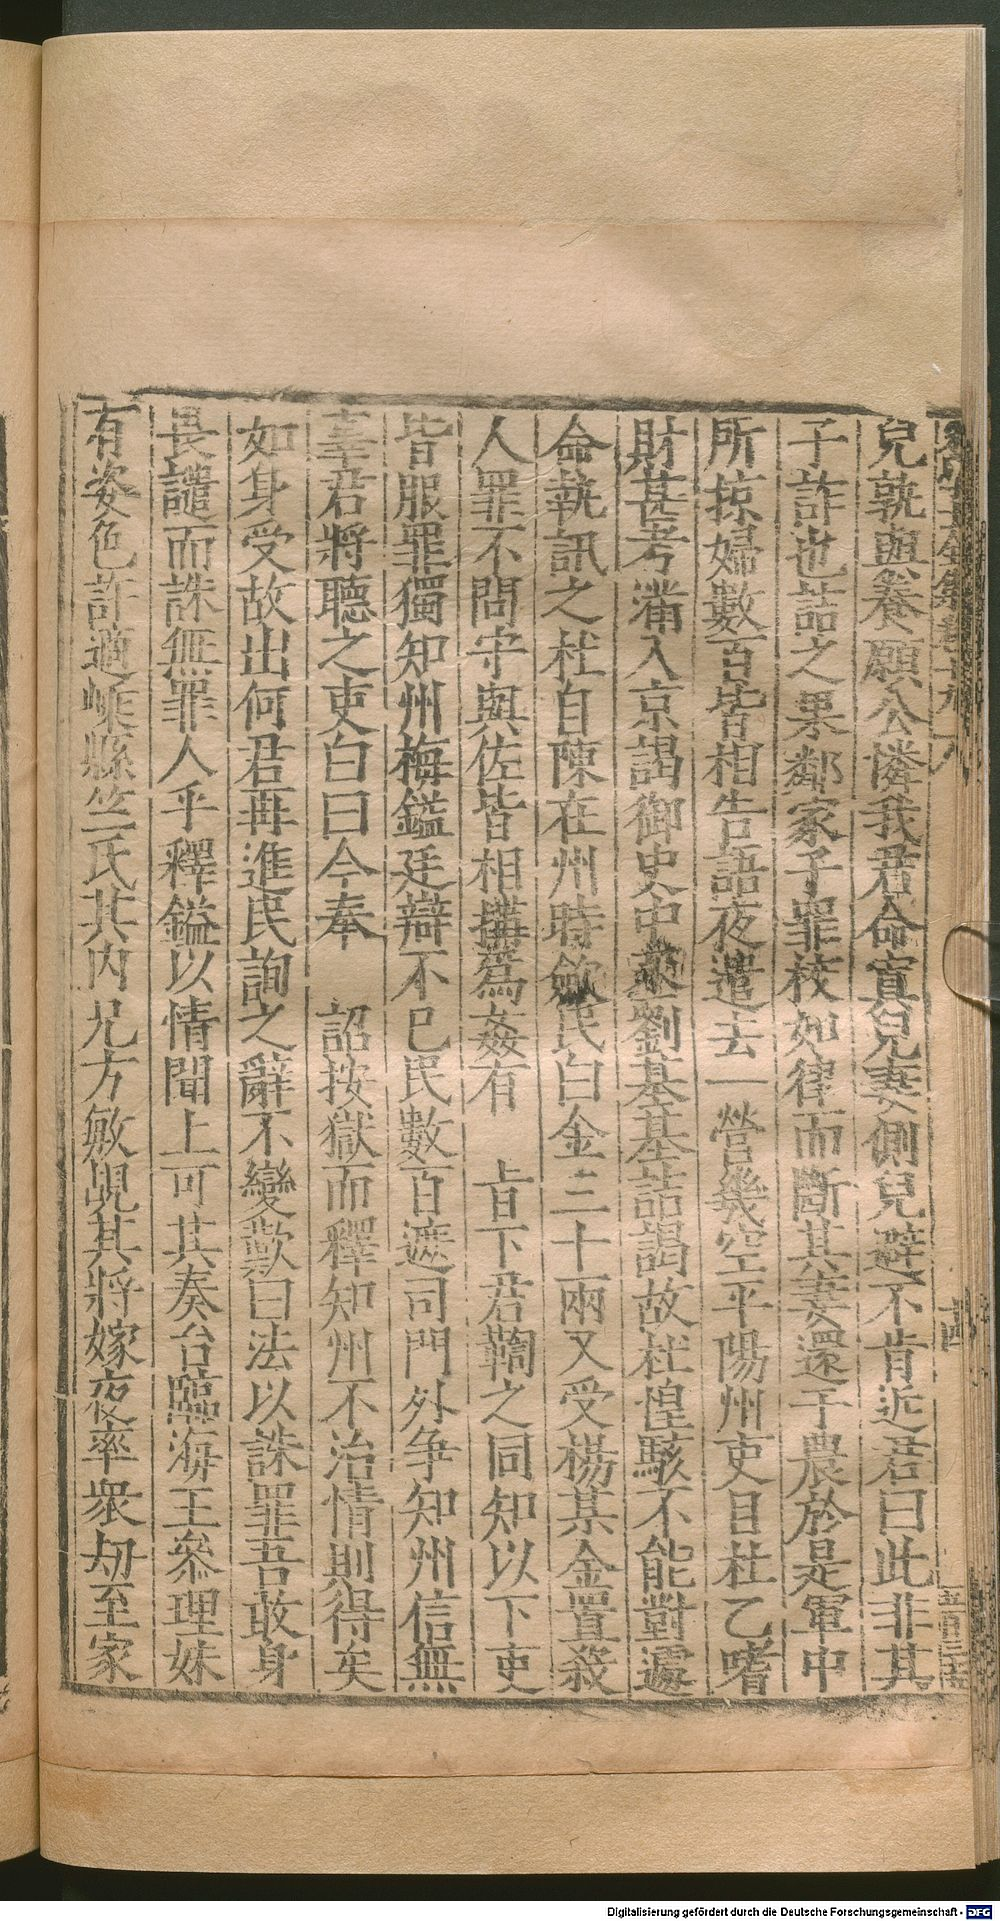 兒孰與養願公憐我君命寘兒妻側兒避不肯近君曰此非其
子詐也詰之果鄰家子罪校如律而斷其妻還于農於是軍中
所掠婦數百皆相告語夜遣去一營幾空平陽州吏目杜乙嗜
財甚考滿入京謁御史中丞劉基基詰謁故杜惶駭不能對遽
命執訊之杜自陳在州時歛民白金三十兩又受楊某金置殺
人罪不問守與佐皆相搆爲姦有　旨下君鞫之同知以下吏
皆服罪獨知州梅鎰廷辯不已民數百遮司門外争知州信無
辜君將聽之吏白曰今奉　詔按獄而釋知州不治情則得矣
如身受故出何君再進民詢之辭不變歎曰法以誅罪吾敢身
畏譴而誅無罪人乎釋鎰以情聞上可其奏台臨海王叅理妹
有姿色許適嵊縣竺氏其内兄方敏覘其將嫁夜率衆刼至家
五百三十五
Digitalisierung gefördert durch die Deutsche Forschungsgemeinschaft - DFG